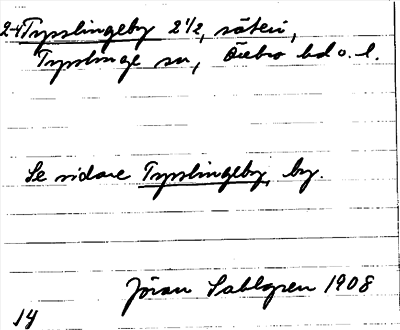 2-4 Tysslingeby 2 1/2, säteri,
Tysslinge sn, Örebro hd o. l.
Se vidare Tysslingeby, by.
Jöran Sahlgren 1908
14